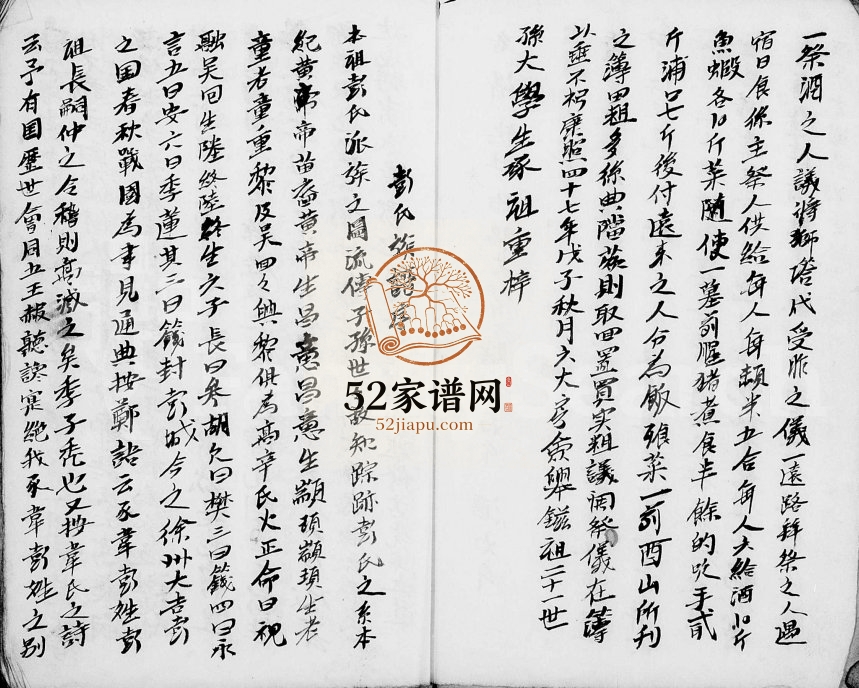 一祭酒之人議將獅塔代受胙之儀一遠路拜祭之人過
宿日食係主祭人供給每人每頓米五合每人大給酒10斤
魚蝦各10斤菜隨使一墓前腥猪煮食半餘的吹手貳
斤浦口七斤後付遠來之人分為飯張菜一前酉山所刋
之簿田租多係典階簽則取回置買实租議閤祭儀在簿
以垂不朽康熙四十七年戊子秋月六大房貢舉鎡祖二十一世
孫大學生承祖重梓
彭氏族譜序
本祖彭氏派族之圖流傳子孫世 知踪跡彭氏之系本
紀黃帝帝苗裔黃帝生昌意昌意生顓頊顓頊生老
童老童重黎及吴回興黎俱為高辛氏火正命曰祝
融吴回生陸終陸終生六子長曰参胡次曰樊三曰籛四曰求
言五曰安六曰季蓮其三曰籛封彭城今之徐州大吉彭
之国春秋戰國為事見通典按鄭語云豕韋彭姓彭
祖長嗣仲之令稽則高减之矣季子秃也又按韋氏之詩
云予有国歴世會同五王赧聽讒寔絶我豕韋彭姓之别
52家谱网
52jiapu.com